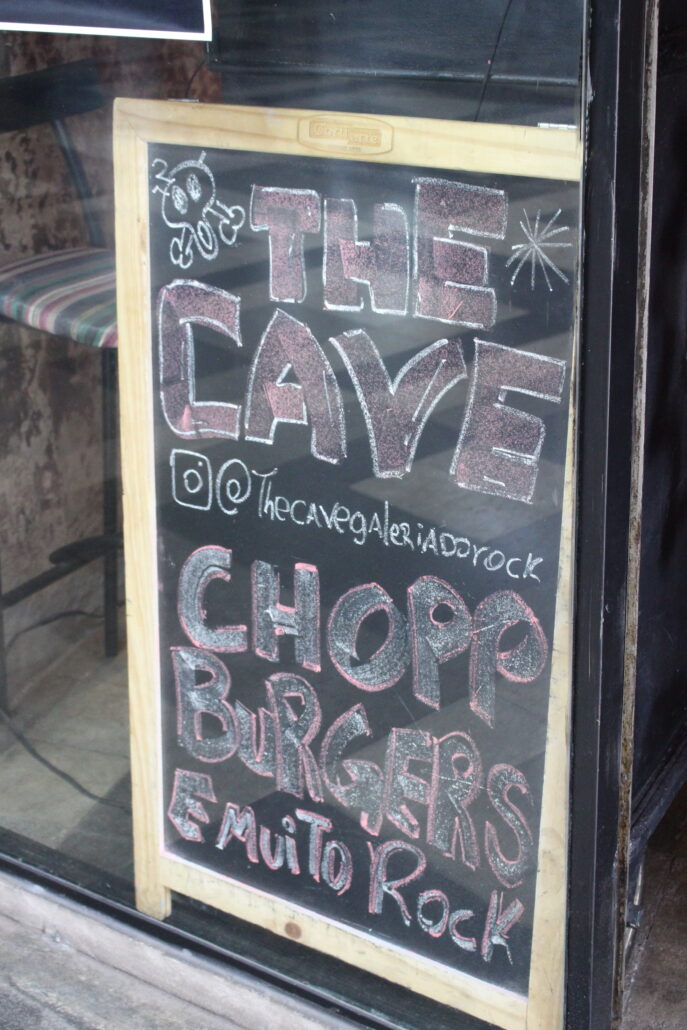 THE
CAVE
@ThecavegaleriadoRock
CHOPP
BURGERS
E MUITO ROCK